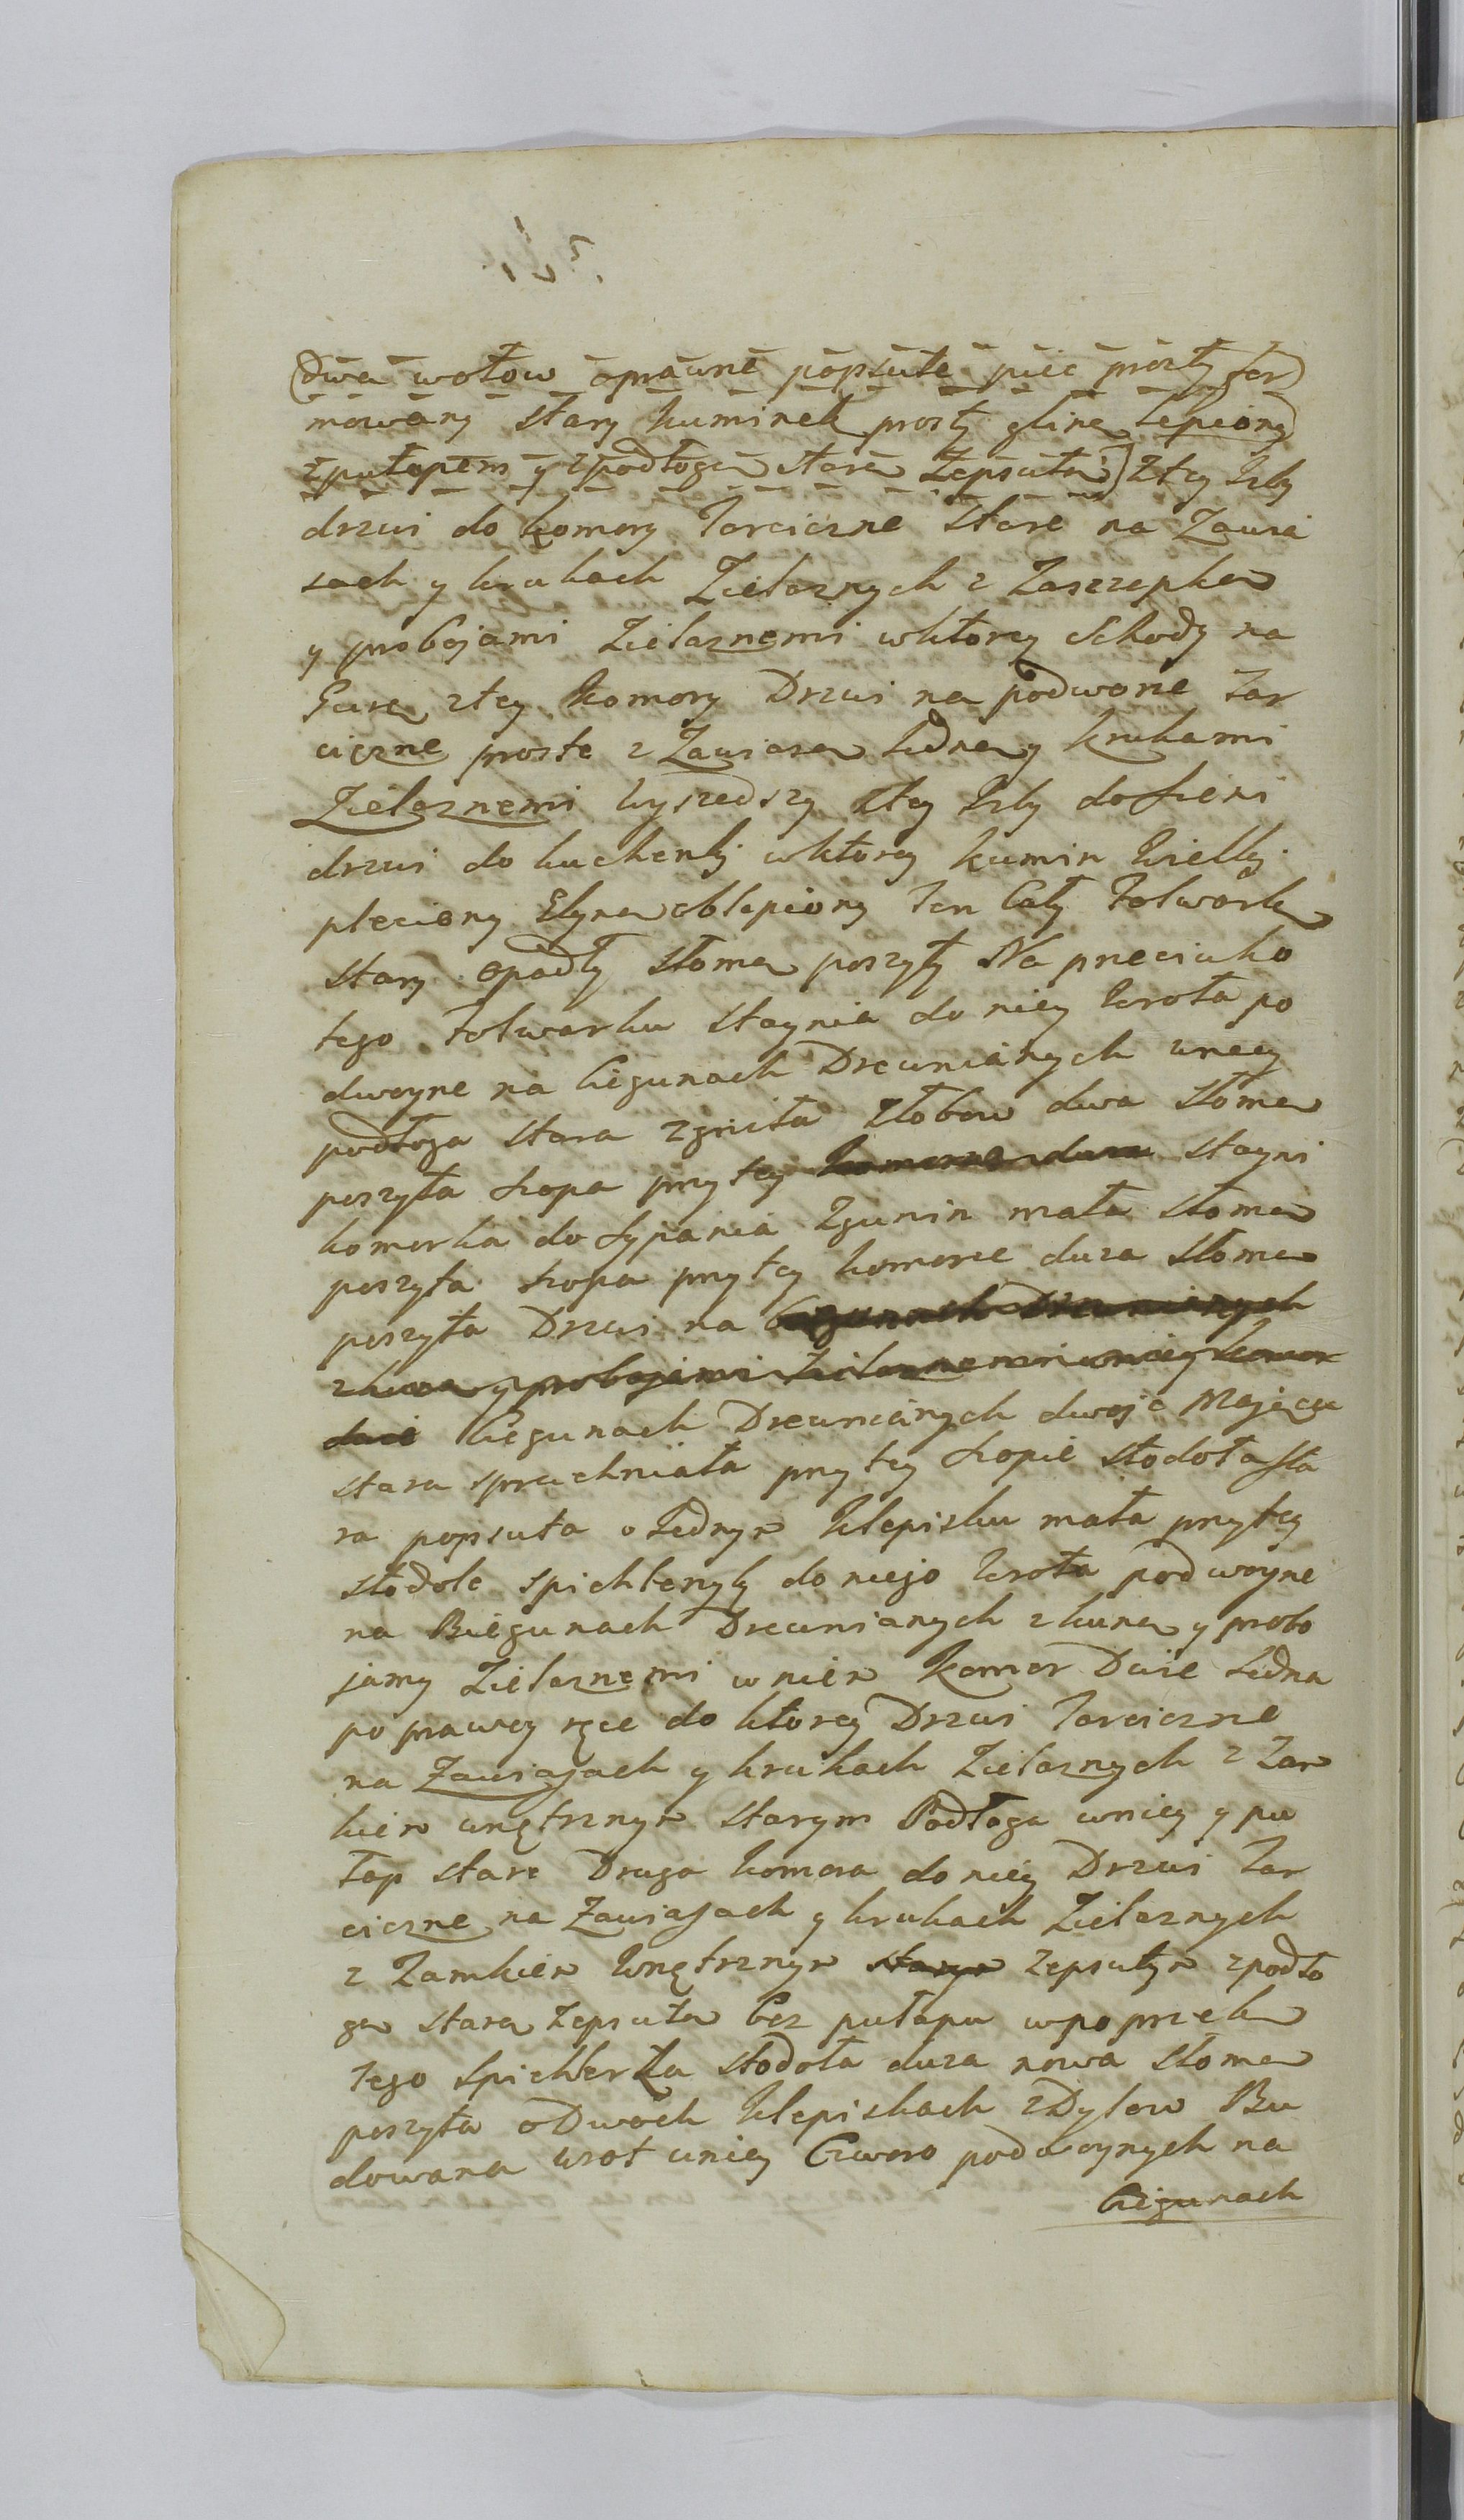 dwa wołow oprawne popsute piec prosty for
mowany stary kuminek prosty gliną lepiony
z pułapem y z podłogą starą zepsutą) z tey Izby
drzwi do komory tarciczne stare na Zawia
sach y krukach Żielaznych z Zaszczepką
y probojami Żielaznemi wktorey Schody na
Gurę z tey komory Drzwi na podworze tar
ciczne proste z Zawiasą Jedną y krukami
Żielaznemi Wyszedszy z tey Izby do sieni
drzwi do kuchenki wktorey kumin Wielki
pleciony Glyną oblepiony Ten Cały Folwark
stary opadły słomą poszyty Na preciwko
tego Folwarku staynia do niey Wrota po
dwoyne na biegunach Drewnianych wniey
podłoga stara zgniła Złobow dwa słomą
poszyta szopa przy tey komorze duża stayni
komorka do sypania zgunin mała słomą
poszyta szopa przy tey komorze duza słomą
poszyta Drzwi na biegunach Drewnianych
z kuną y probojami Żielaznemi wniey komor
dwie biegunach Drewnianych dwoje Mająca
stara spruchniała przy tey szopie stodoła sta
ra popsuta o Jednym klepisku mała przy tey
stodole spichlerzyk do niego Wrota podwoyne
na Biegunach Drewnianych z kuną y probo
jamy Żielaznemi w niem komor Dwie Jedna
po prawey ręce do ktorey Drzwi tarciczne
na Zawiasach y krukach Żielaznych z Zam
kiem wnętrznym starym Podłoga wniey y pu
łap stare Druga komora do niey Drzwi tar
ciczne na Zawiasach y krukach Żielaznych
z Zamkiem Wnętrznym starym zepsutym z podło
gą starą zepsutą bez pułapu wpoprzek
tego Spichlerza stodoła duza nowa słomą
poszyta o Dwoch klepiskach z Dylow Bu
dowana wrot wniey Czworo podwoynych na
biegunach